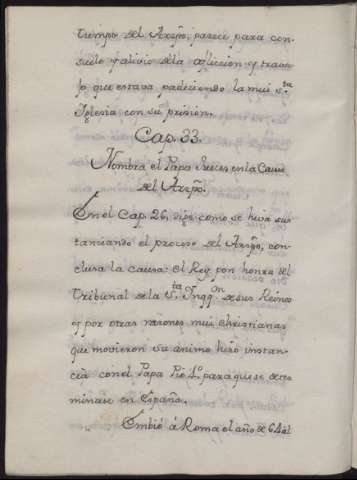 tiempo del Arzpo. parece para con-
suelo y alivio de la aflicción y traba-
jo que estava padeciendo la mui Sta
Iglesia con su prisión.
Cap. 33.
Nombra el Papa Jueces en la Causa
del Arzpo.
En el Cap. 26, dije como se hiva sus
tanciando el proceso del Arzpo, con-
clusa la causa: el Rey por honra del
Tribunal de la Sta Inqqon de sus Reinos
y por otras razones mui christianas
que movieron su animo hizo instan-
cia con el Papa Pio 4o para que se deter
minase en España.
Embió á Roma el año de 64 al